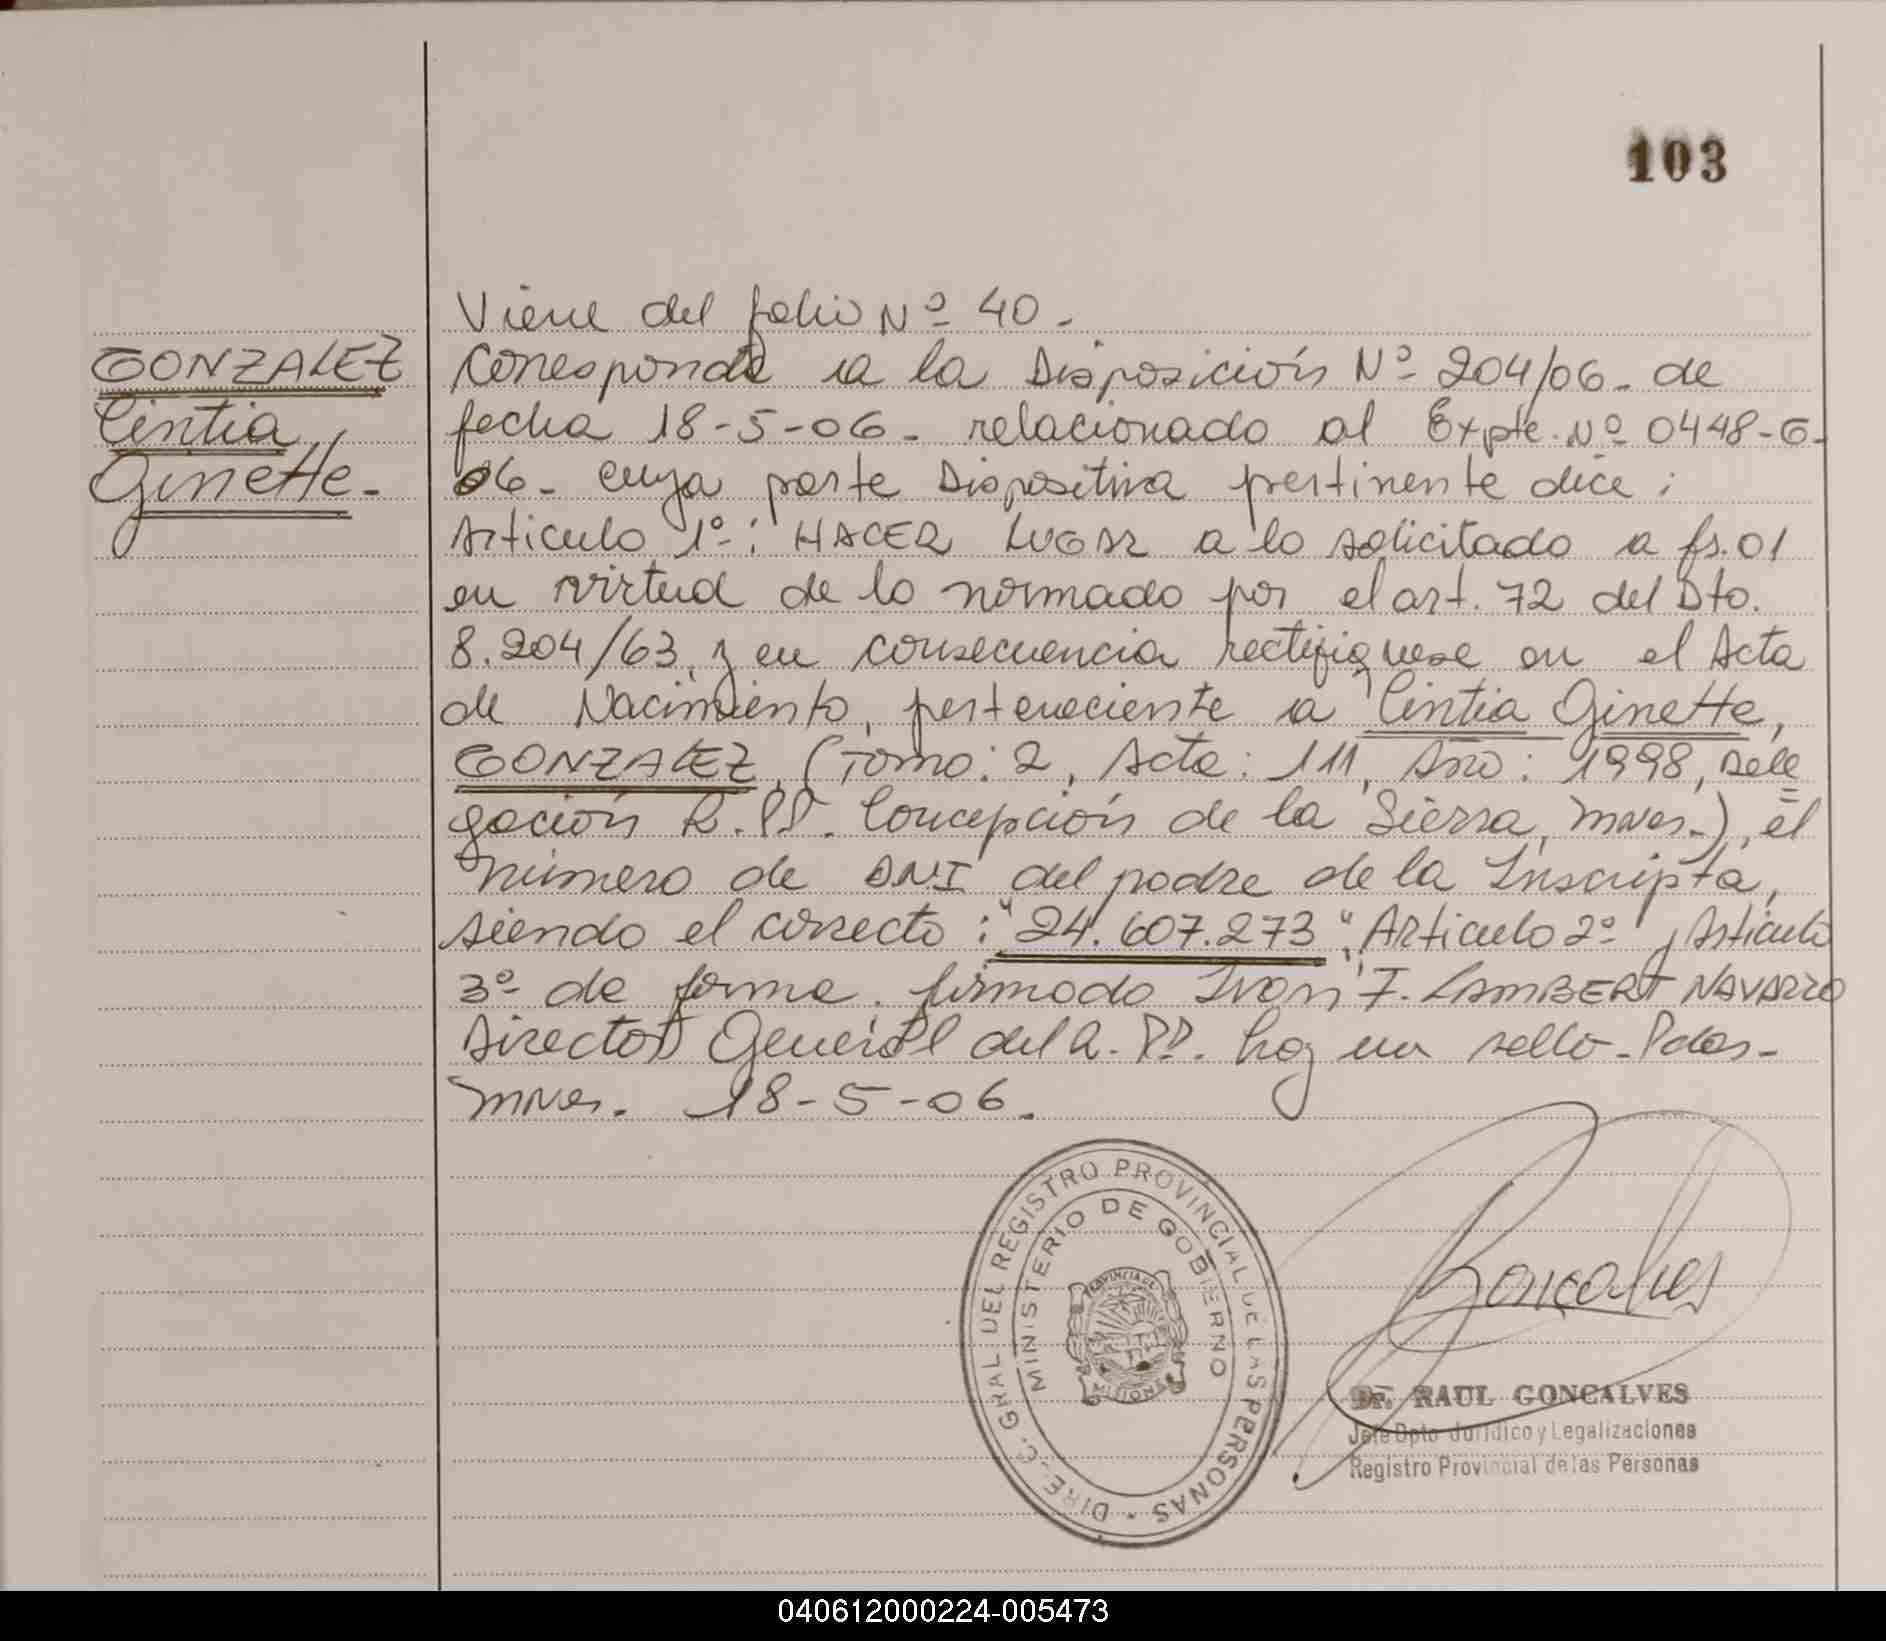 103
Viene del folio Nº 40.
GONZALEZ
Cintia
Ginette.
Corresponde a la Disposición Nº 204/06. de
fecha 18-5-06. relacionado al Expte. Nº 0448-G-
06. cuya parte Dispositiva pertinente dice:
Articulo 1º: HACER LUGAR a lo solicitado a fs. 01
en virtud de lo normado por el art. 72 del Dto.
8.204/63, y en consecuencia rectifiquese en el Acta
de Nacimiento, perteneciente a Cintia Ginette,
GONZALEZ, (Tomo: 2, Acta: 111, Año: 1998, Dele
gación R.PP. Concepción de la Sierra, Mnes.), el
número de DNI del padre de la Inscripta,
siendo el correcto: "24.607.273". Articulo 2º y Articulo
3º de forma. firmado Ivan F. LAMBERT NAVARRO
Director General del R.PP. hay un sello. Pdas.
Mnes. 18-5-06.
DIREC. GRAL DEL REGISTRO PROVINCIAL DE LAS PERSONAS
MINISTERIO DE GOBIERNO
PROVINCIA DE
MISIONES
Goncalves
Dr. RAUL GONCALVES
Jefe Dpto Jurídico y Legalizaciones
Registro Provincial de las Personas
040612000224-005473